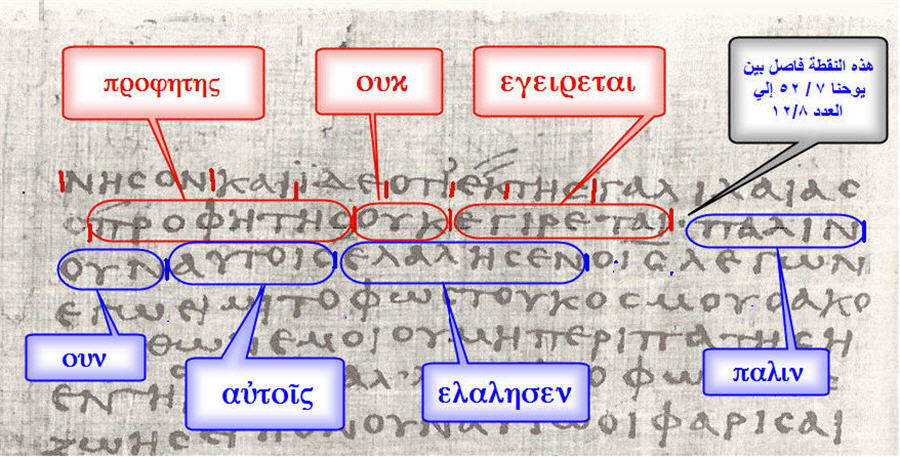 προφητης ουκ εγειρεται
هذه النقطة فاصل بين
يوحنا ٧ / ٥٢ إلي
العدد ١٢/٨
ΝΗϹΟΝΚΑΙΙΔΕΟΤΙΕΚΤΗϹΓΑΛΙΛΑΙΑϹ
ΠΡΟΦΗΤΗϹΟΥΚΕΓΙΡΕΤΑΙ ΠΑΛΙΝ
ΟΥΝΑΥΤΟΙϹΕΛΑΛΗϹΕΝΟΙϹΛΕΓΩΝ
ΕΓΩΕΙΜΙΤΟΦΩϹΤΟΥΚΟϹΜΟΥΟΑΚΟ
ΘΩΝΕΜΟΙΟΥΜΗΠΕΡΙΠΑΤΗϹΗ
ΕΝΤΗ
ΖΩΗϹ ΟΥΝΑΥΤΩΟΙΦΑΡΙϹΑΙ
ουν αὐτοῖς ελαλησεν παλιν